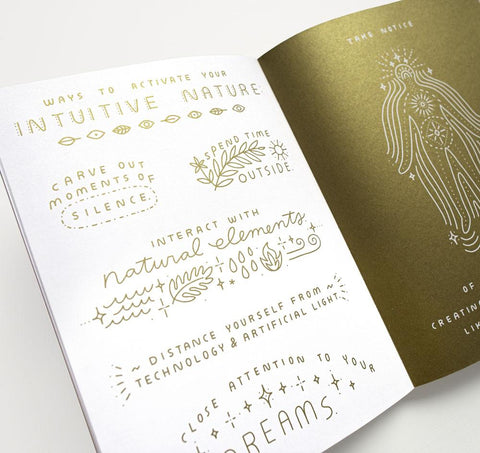 WAYS TO ACTIVATE YOUR
INTUITIVE NATURE:
CARVE OUT
MOMENTS OF
SILENCE.
SPEND TIME
OUTSIDE.
INTERACT WITH
natural elements
~ DISTANCE YOURSELF FROM ~
TECHNOLOGY & ARTIFICIAL LIGHT.
CLOSE ATTENTION TO YOUR
DREAMS.
TAKE NOTICE
OF
CREATING
LIK